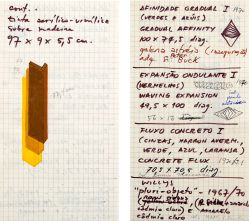 conf..
tinta acrílica-vinílica
sobre madeira
97 x 9 x 5,5 cm.
AFINIDADE GRADUAL I
(VERDES e AZUIS)
GRADUAL AFFINITY
100 x 77,5 diag.
adq. S. Buck
EXPANSÃO ONDULANTE I
(VERMELHOS)
WAVING EXPANSION
49,5 x 100 diag.
FLUXO CONCRETO I
(CINZAS, MARROM AVERM.,
VERDE, AZUL, LARANJA)
CONCRETE FLUX
70,5 x 70,5 diag.
WILLYS
"pluri-objeto" - 1967/70
cádmio claro e amarelo
cádmio claro